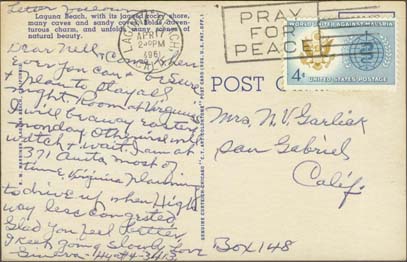 Letter follows
Laguna Beach, with its jagged rocky shore,
many caves and sandy coves, holds adven-
turous charm, and unfolds many scenes of
natural beauty.
Dear Nell
Come when
Ever you can & be sure
& plan to stay all
night. Room at Virginia's
I will be away Easter
Monday otherwise will
watch & wait. I am at
371 Anita most of
time, Virginia planning
to drive up when High
way less congested
Glad you feel better
I keep going slowly Love
Geneva - Hy 4-3413
LAGUNA BEACH
APR 17
2 30 PM
1961
PRAY
FOR
PEACE
WORLD UNITED AGAINST MALARIA
4¢
UNITED STATES POSTAGE
POST CARD
Mrs. N. V. Garlick
San Gabriel
Calif.
Box 148